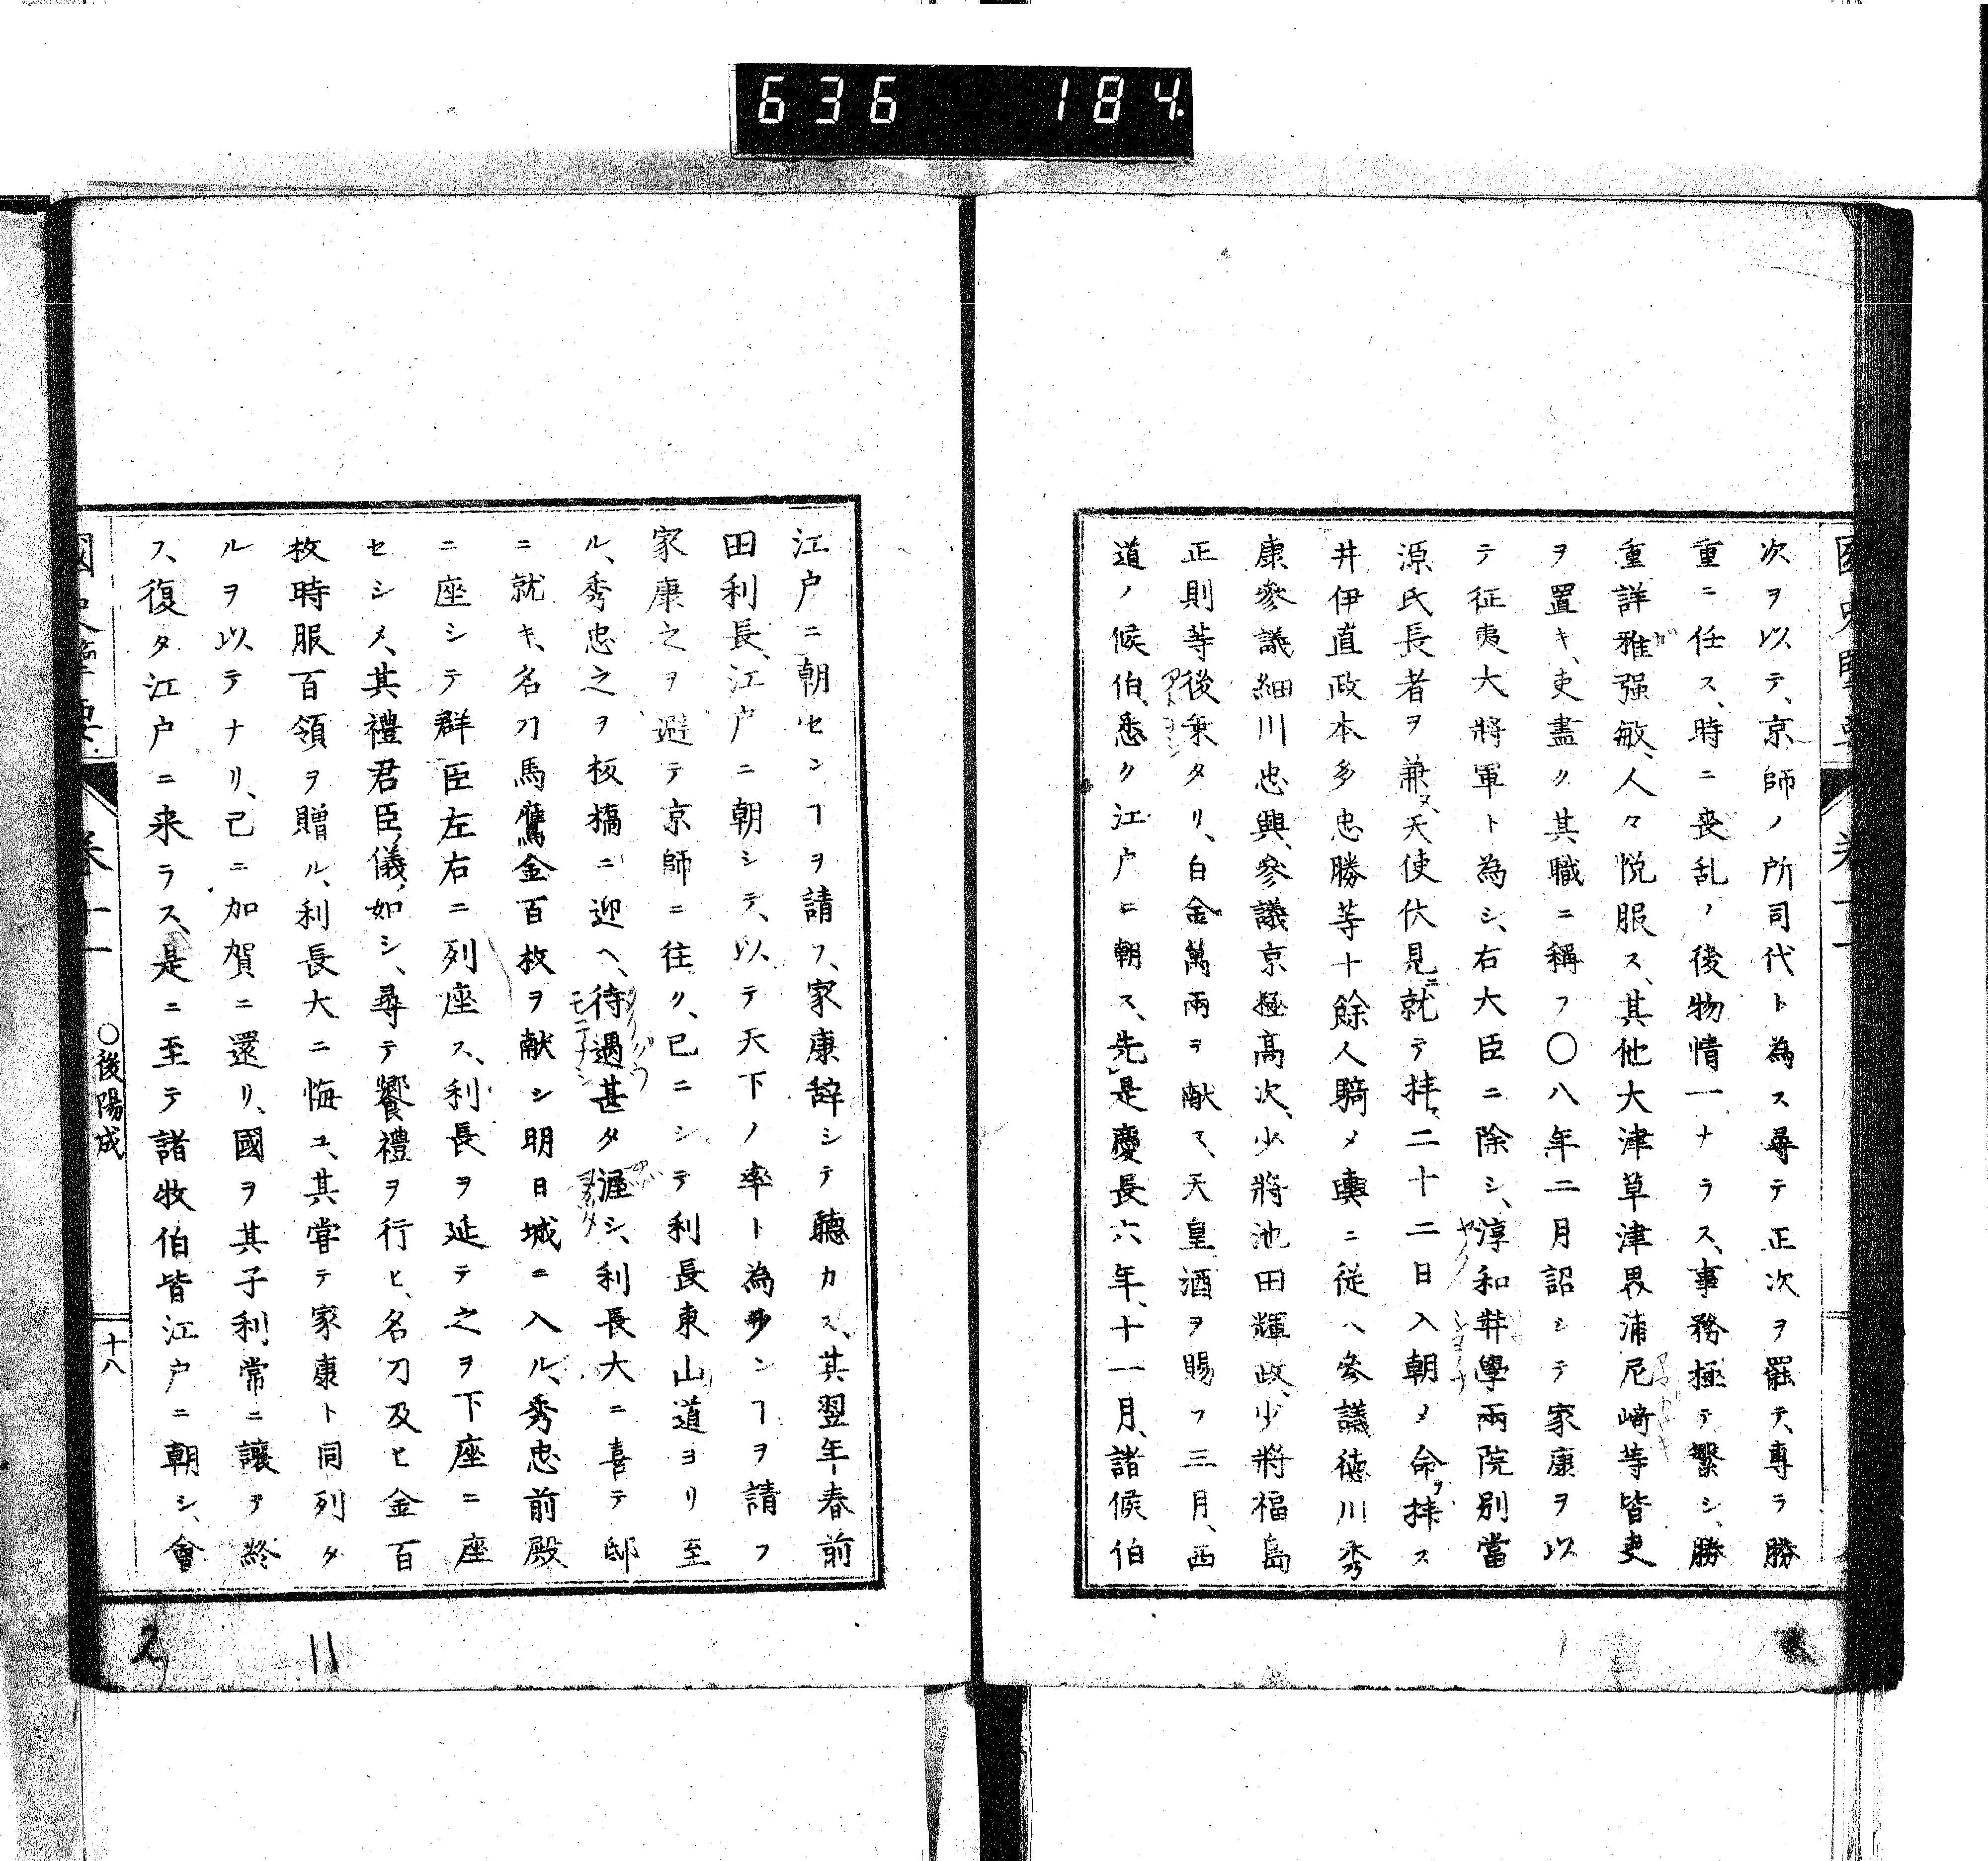 636 184
次ヲ以テ、京師ノ所司代ト為ス尋テ正次ヲ罷テ、専ラ勝
重ニ任ス、時ニ喪乱ノ後物情一ナラス、事務極テ繋シ、勝
重詳雅强敏、人々悦服ス、其他大津草津畏浦尼崎等皆吏
ヲ置キ、吏盡ク其職ニ稱フ〇八年二月詔シテ家康ヲ以
テ征夷大將軍ト為シ、右大臣ニ除シ、淳和弉學兩院別當
源氏長者ヲ兼ヌ、天使伏見ニ就テ拝ス二十二日入朝メ命ヲ拝ス
井伊直政本多忠勝等十餘人騎メ輿ニ従ヘ參議徳川秀
康參議細川忠興、參議京極高次、少將池田輝政、少將福島
正則等後乗タリ、白金萬兩ヲ献ス、天皇酒ヲ賜フ三月、西
道ノ候伯、悉ク江户ニ朝ス、先是慶長六年、十一月、諸候伯
江户ニ朝センヿヲ請フ、家康辞シテ聽カス、其翌年春前
田利長、江户ニ朝シテ、以テ天下ノ率ト為ランヿヲ請フ
家康之ヲ避テ京師ニ往ク、已ニシテ利長東山道ヨリ至
ル、秀忠之ヲ板橋ニ迎ヘ、待遇甚タ渥シ、利長大ニ喜テ邸
ニ就キ、名刀馬鷹金百枚ヲ献シ明日城ニ入ル、秀忠前殿
ニ座シテ群臣左右ニ列座ス、利長ヲ延テ之ヲ下座ニ座
セシメ、其禮君臣儀ノ如シ、尋テ饗禮ヲ行ヒ、名刀及ヒ金百
枚時服百領ヲ贈ル、利長大ニ悔ユ、其嘗テ家康ト同列タ
ルヲ以テナリ、已ニ加賀ニ還リ、國ヲ其子利常ニ讓ヲ終
フ、復タ江户ニ来ラス、是ニ至テ諸牧伯皆江户ニ朝シ、會
卷十一 〇後陽成 十八
11